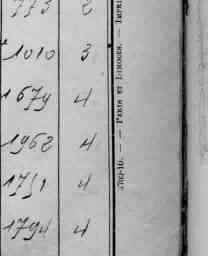 773 2
1010 3
1679 4
1962 4
1751 4
1794 4
PARIS ET LIMOGES. — IMPRI